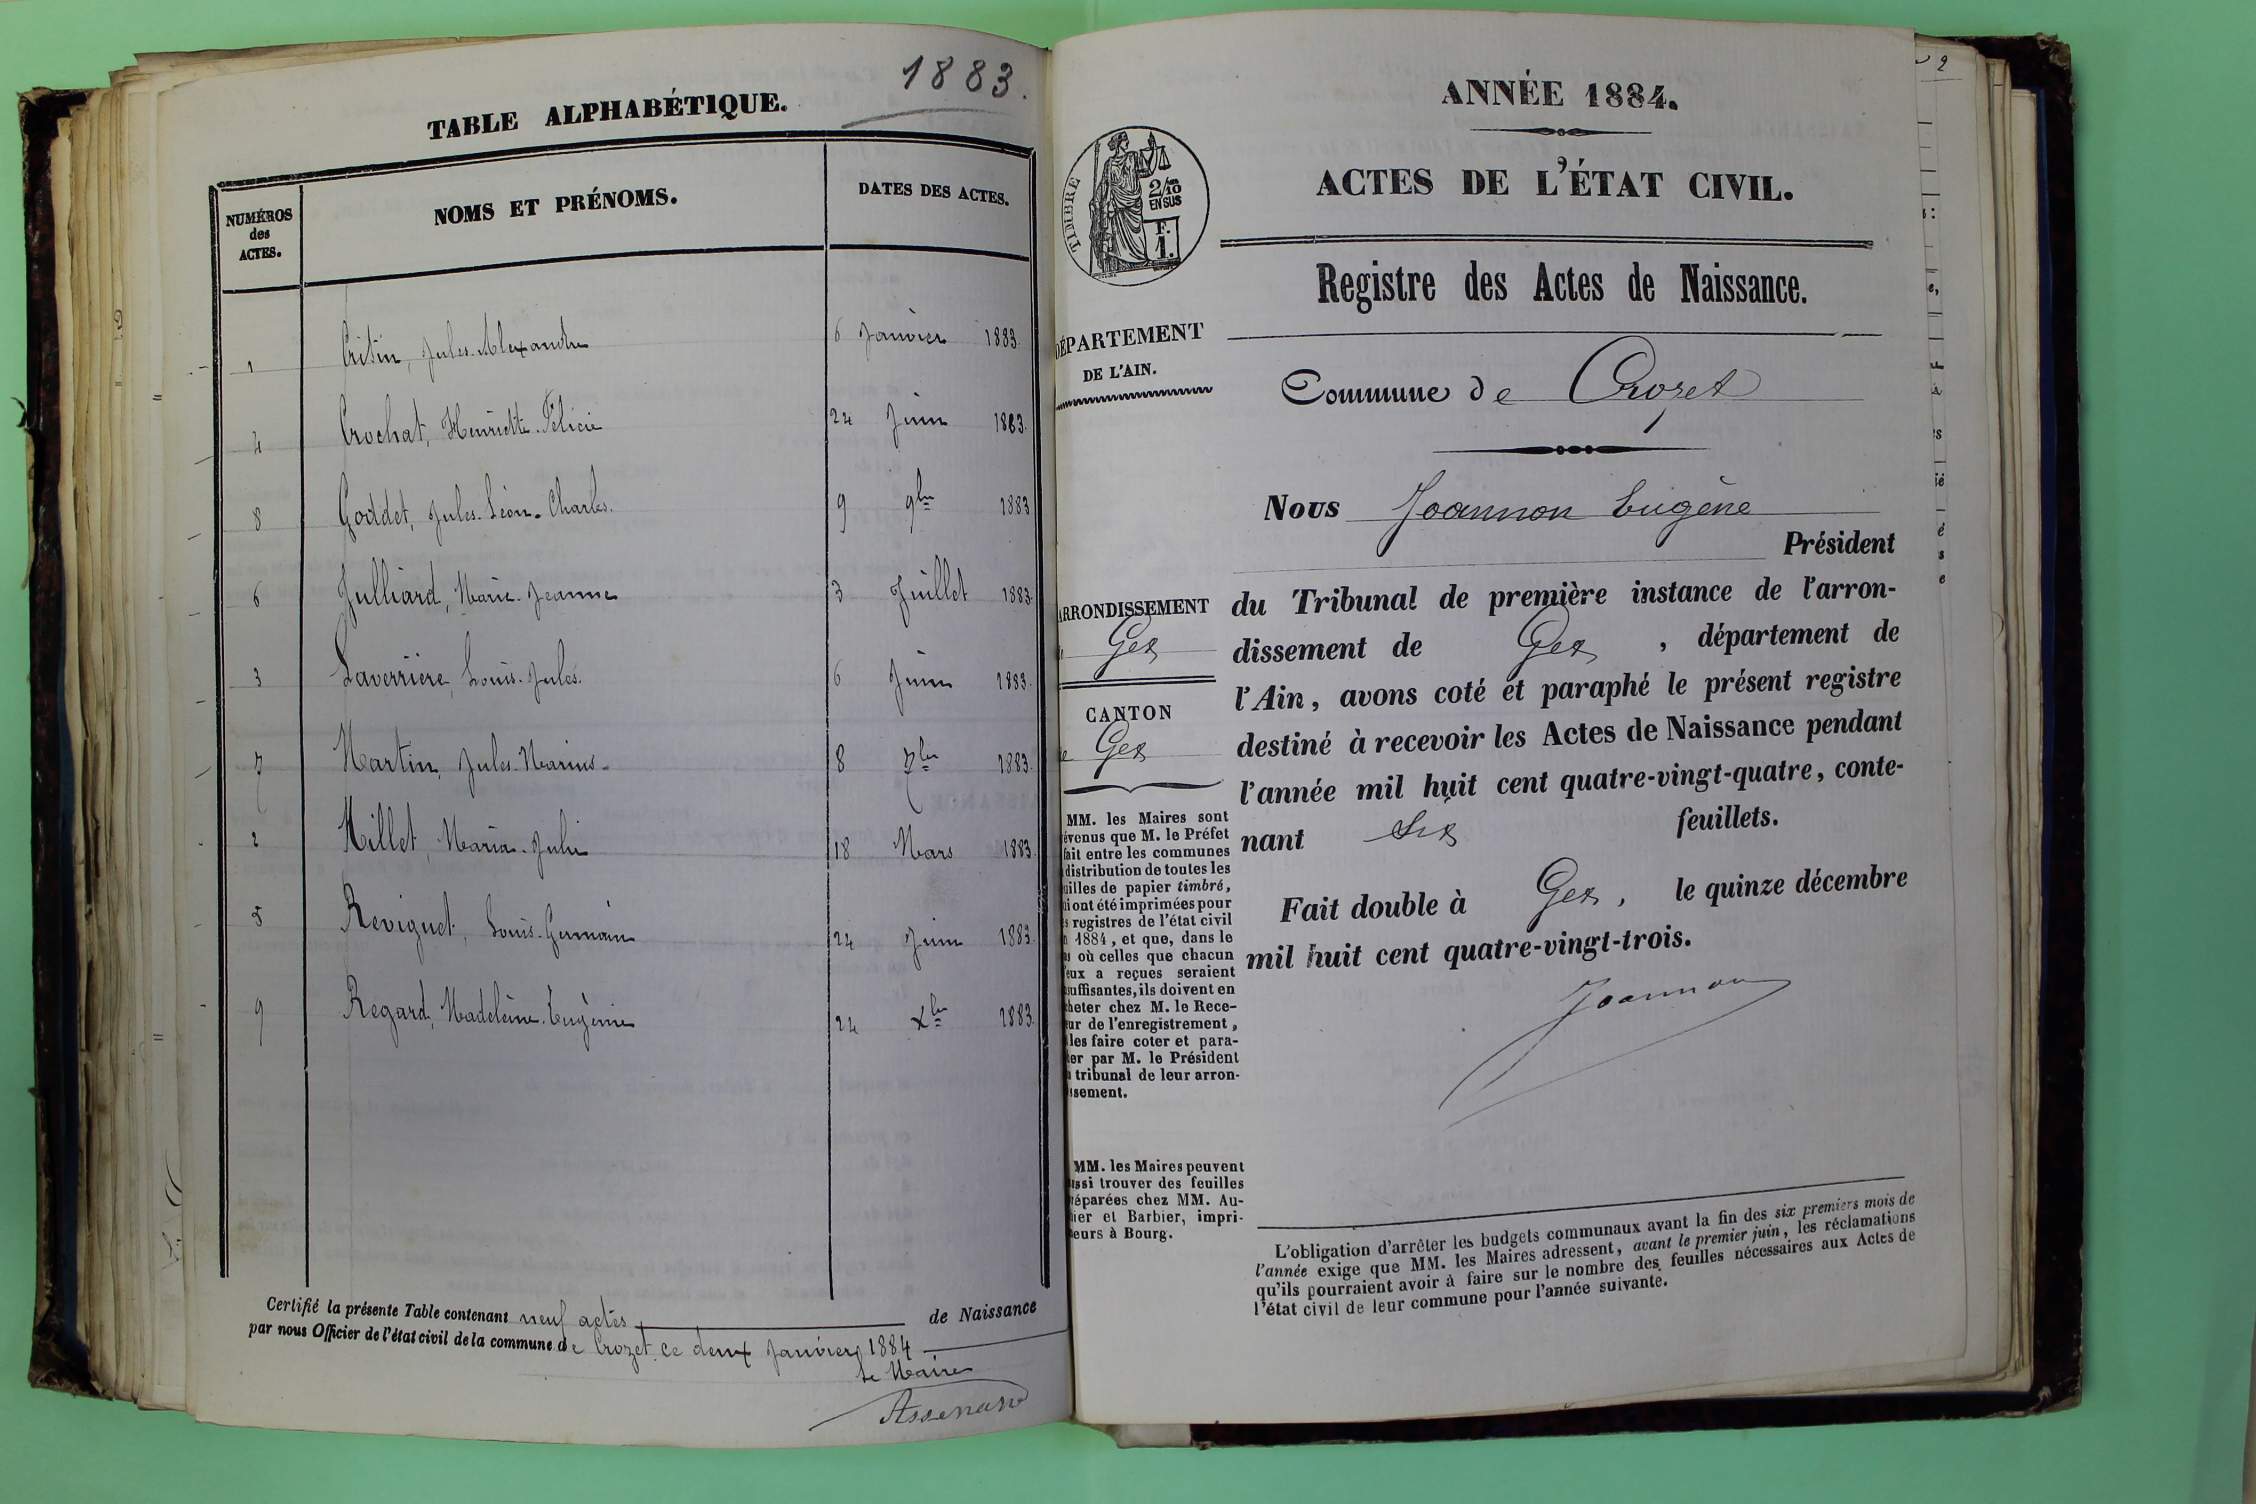 1883.
TABLE ALPHABÉTIQUE.
NUMÉROS des ACTES. NOMS ET PRÉNOMS. DATES DES ACTES.
1 Critin, Jules-Alexandre 6 Janvier 1883.
4 Crochat, Henriette-Félicie 24 Juin 1883.
8 Goddet, Jules-Léon-Charles. 9 9bre 1883
6 Julliard, Marie-Jeanne 3 Juillet 1883.
3 Laverrière, Louis-Jules. 6 Juin 1883.
7 Martin, Jules-Marius- 8 7bre 1883.
2 Millet, Maria-Julie 18 Mars 1883.
5 Reviguet, Louis-Germain 24 Juin 1883.
9 Regard, Madeleine-Eugénie 24 xbre 1883.
Certifié la présente Table contenant neuf actes de Naissance
par nous Officier de l'état civil de la commune de Crozet, ce deux Janvier 1884
Le Maire
2
ANNÉE 1884.
ACTES DE L'ÉTAT CIVIL.
TIMBRE
2/10
EN SUS
F.
1.
Registre des Actes de Naissance.
DÉPARTEMENT
DE L'AIN.
Commune de Crozet
Nous Joannon Eugène
Président
ARRONDISSEMENT
Gex
CANTON
de Gex
du Tribunal de première instance de l'arron-
dissement de Gex, département de
l'Ain, avons coté et paraphé le présent registre
destiné à recevoir les Actes de Naissance pendant
l'année mil huit cent quatre-vingt-quatre, conte-
nant six feuillets.
Fait double à Gex, le quinze décembre
mil huit cent quatre-vingt-trois.
Joannon
MM. les Maires sont
évenus que M. le Préfet
fait entre les communes
distribution de toutes les
uilles de papier timbré,
i ont été imprimées pour
s registres de l'état civil
n 1884, et que, dans le
s où celles que chacun
eux a reçues seraient
suffisantes, ils doivent en
heter chez M. le Rece-
ur de l'enregistrement,
les faire coter et para-
er par M. le Président
tribunal de leur arron-
ssement.
MM. les Maires peuvent
ssi trouver des feuilles
éparées chez MM. Au-
ier et Barbier, impri-
eurs à Bourg.
L'obligation d'arrêter les budgets communaux avant la fin des six premiers mois de
l'année exige que MM. les Maires adressent, avant le premier juin, les réclamations
qu'ils pourraient avoir à faire sur le nombre des feuilles nécessaires aux Actes de
l'état civil de leur commune pour l'année suivante.